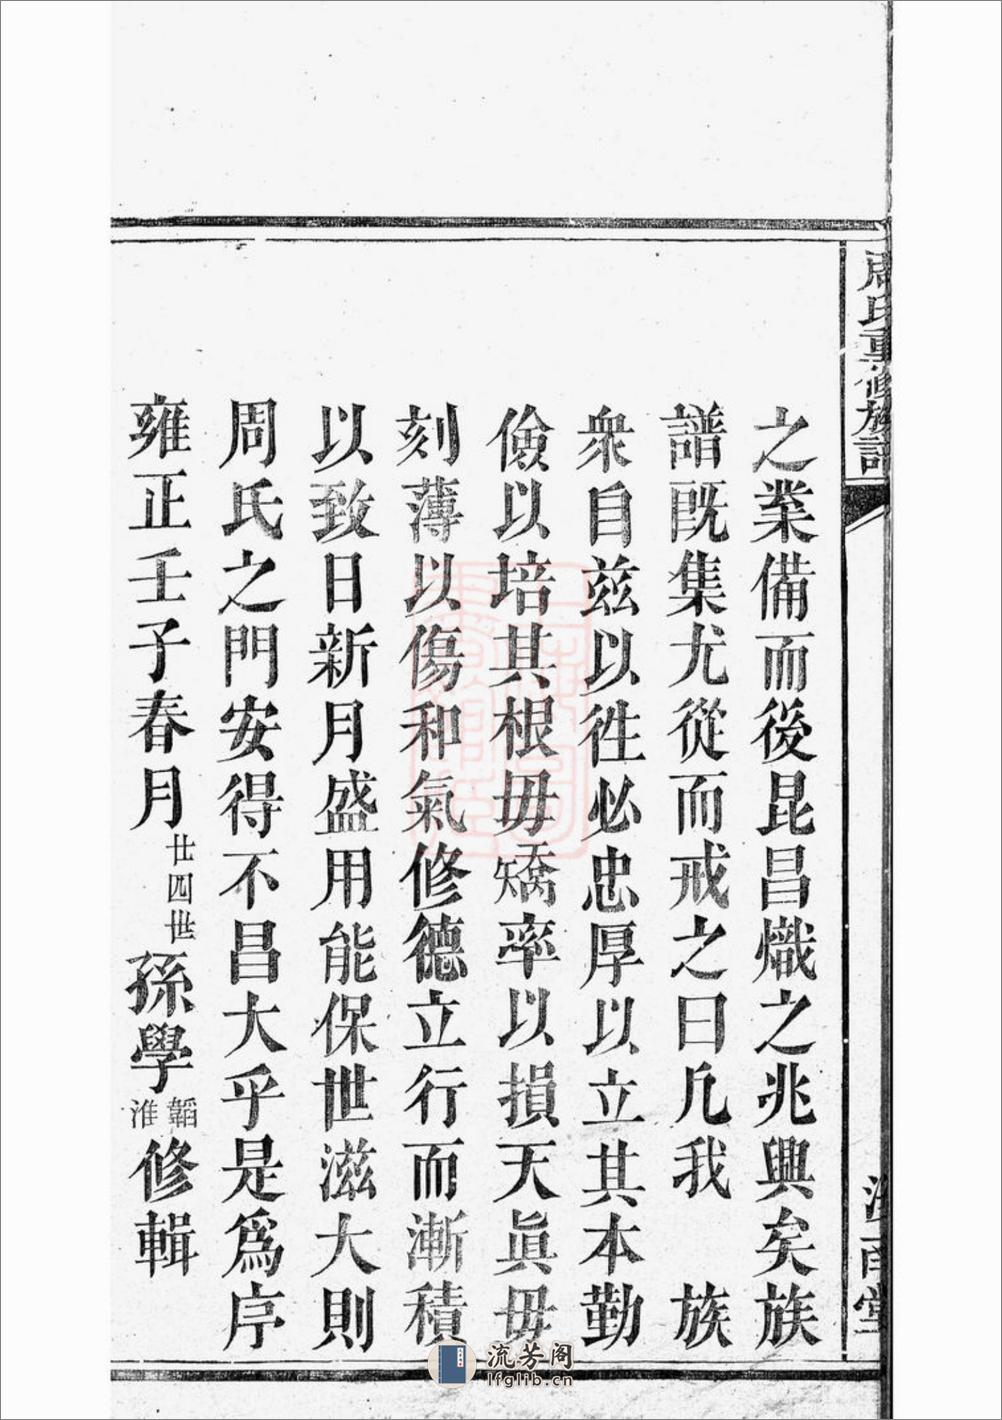 周氏重修族譜
之業備而後昆昌熾之兆興矣族
譜既集尤從而戒之曰凡我　族
衆自兹以徃必忠厚以立其本勤
儉以培其根毋矯率以損天眞毋
刻薄以傷和氣修德立行而漸積
以致日新月盛用能保世滋大則
周氏之門安得不昌大乎是爲序
雍正壬子春月廿四世孫學韜淮修輯
流芳阁
lfglib.cn